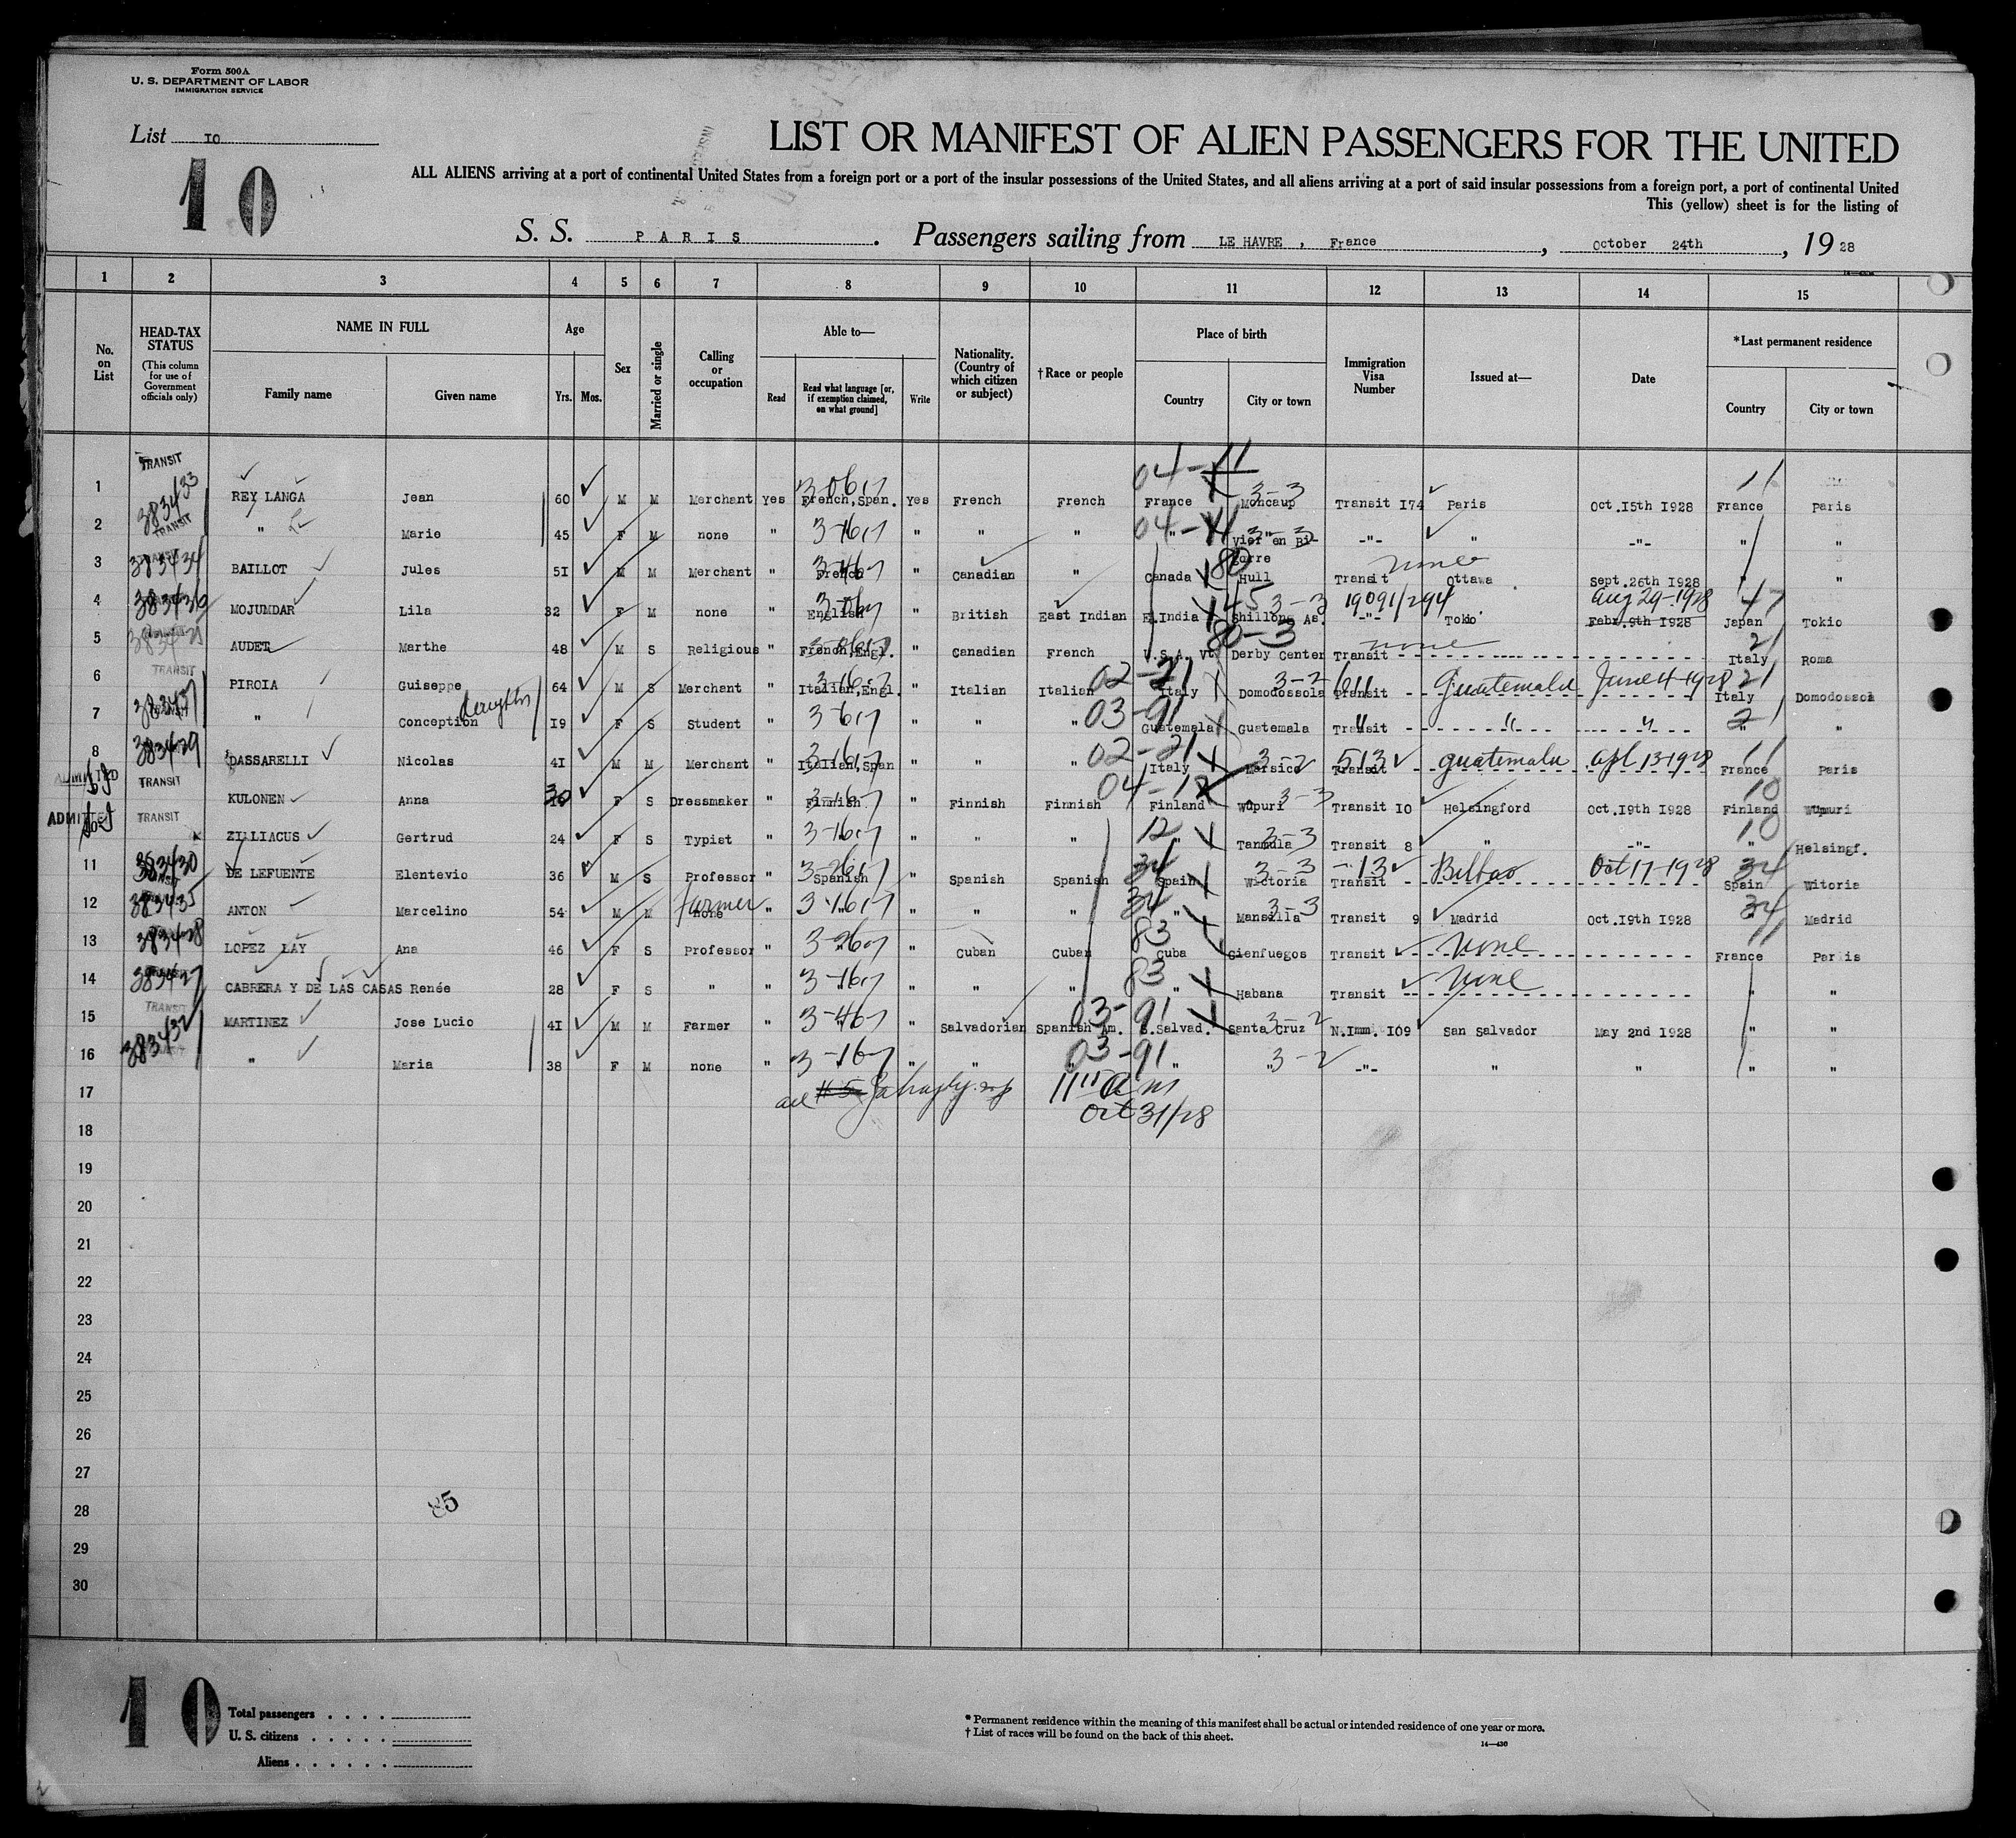 Form 500A
U. S. DEPARTMENT OF LABOR
IMMIGRATION SERVICE
List 10
10
LIST OR MANIFEST OF ALIEN PASSENGERS FOR THE UNITED
ALL ALIENS arriving at a port of continental United States from a foreign port or a port of the insular possessions of the United States, and all aliens arriving at a port of said insular possessions from a foreign port, a port of continental United
This (yellow) sheet is for the listing of
S. S. PARIS. Passengers sailing from LE HAVRE, France, October 24th, 1928
1 2 3 4 5 6 7 8 9 10 11 12 13 14 15
No. on List
HEAD-TAX STATUS (This column for use of Government officials only)
NAME IN FULL Family name Given name
Age Yrs. Mos.
Sex
Married or single
Calling or occupation
Able to— Read Read what language [or, if exemption claimed, on what ground] Write
Nationality. (Country of which citizen or subject)
†Race or people
Place of birth Country City or town
Immigration Visa Number
Issued at—
Date
*Last permanent residence Country City or town
1 TRANSIT 383433 REY LANGA Jean 60 M M Merchant Yes French,Span. Yes French French France Moncaup Transit 174 Paris Oct.15th 1928 France Paris
2 TRANSIT " Marie 45 F M none " " " " " Vier en Bi- gorre -"- " -"- " "
3 383434 BAILLOT Jules 51 M M Merchant " French " Canadian " Canada Hull Transit none Ottawa Sept.26th 1928 " "
4 383436 MOJUMDAR Lila 32 F M none " English " British East Indian E.India Shillong As. -"- 19091/294 Tokio Aug 29-1928 Febr.9th 1928 Japan Tokio
5 AUDET Marthe 48 M S Religious " French,Engl. " Canadian French U.S.A. Vt. Derby Center Transit none Italy Roma
6 TRANSIT PIROIA Guiseppe 64 M S Merchant " Italian,Engl. " Italian Italian Italy Domodossola Transit 611 Guatemala June 4-1928 Italy Domodossola
7 383437 " Conception daughter 19 F S Student " " " " Guatemala Guatemala Transit " " " " "
8 383429 DASSARELLI Nicolas 41 M M Merchant " Italian,Span " " " Italy Marsico Transit 513 Guatemala Apl 13-1928 France Paris
ADMITTED TRANSIT KULONEN Anna 30 F S Dressmaker " Finnish " Finnish Finnish Finland Wupuri Transit 10 Helsingford Oct.19th 1928 Finland Wupuri
ADMITTED TRANSIT ZILLIACUS Gertrud 24 F S Typist " " " " " " Tammula Transit 8 " -"- " Helsingf.
11 383430 DE LEFUENTE Elentevio 36 M S Professor " Spanish " Spanish Spanish Spain Wictoria Transit 13 Bilbao Oct 17-1928 Spain Witoria
12 383435 ANTON Marcelino 54 M M none Farmer " " " " " " Mansilla Transit 9 Madrid Oct.19th 1928 " Madrid
13 383428 LOPEZ LAY Ana 46 F S Professor " " " Cuban Cuban Cuba Cienfuegos Transit none France Paris
14 383427 CABRERA Y DE LAS CASAS Renée 28 F S " " " " " " Habana Transit none " "
15 TRANSIT MARTINEZ Jose Lucio 41 M M Farmer " " " Salvadorian Spanish Am. S.Salvad. Santa Cruz N.Imm. 109 San Salvador May 2nd 1928 " "
16 383432 " Maria 38 F M none " " " " " " -"- " " " "
17 11 am
18 Oct 31/28
19
20
21
22
23
24
25
26
27
28 85
29
30
10
Total passengers
U. S. citizens
Aliens
* Permanent residence within the meaning of this manifest shall be actual or intended residence of one year or more.
† List of races will be found on the back of this sheet.
14—430